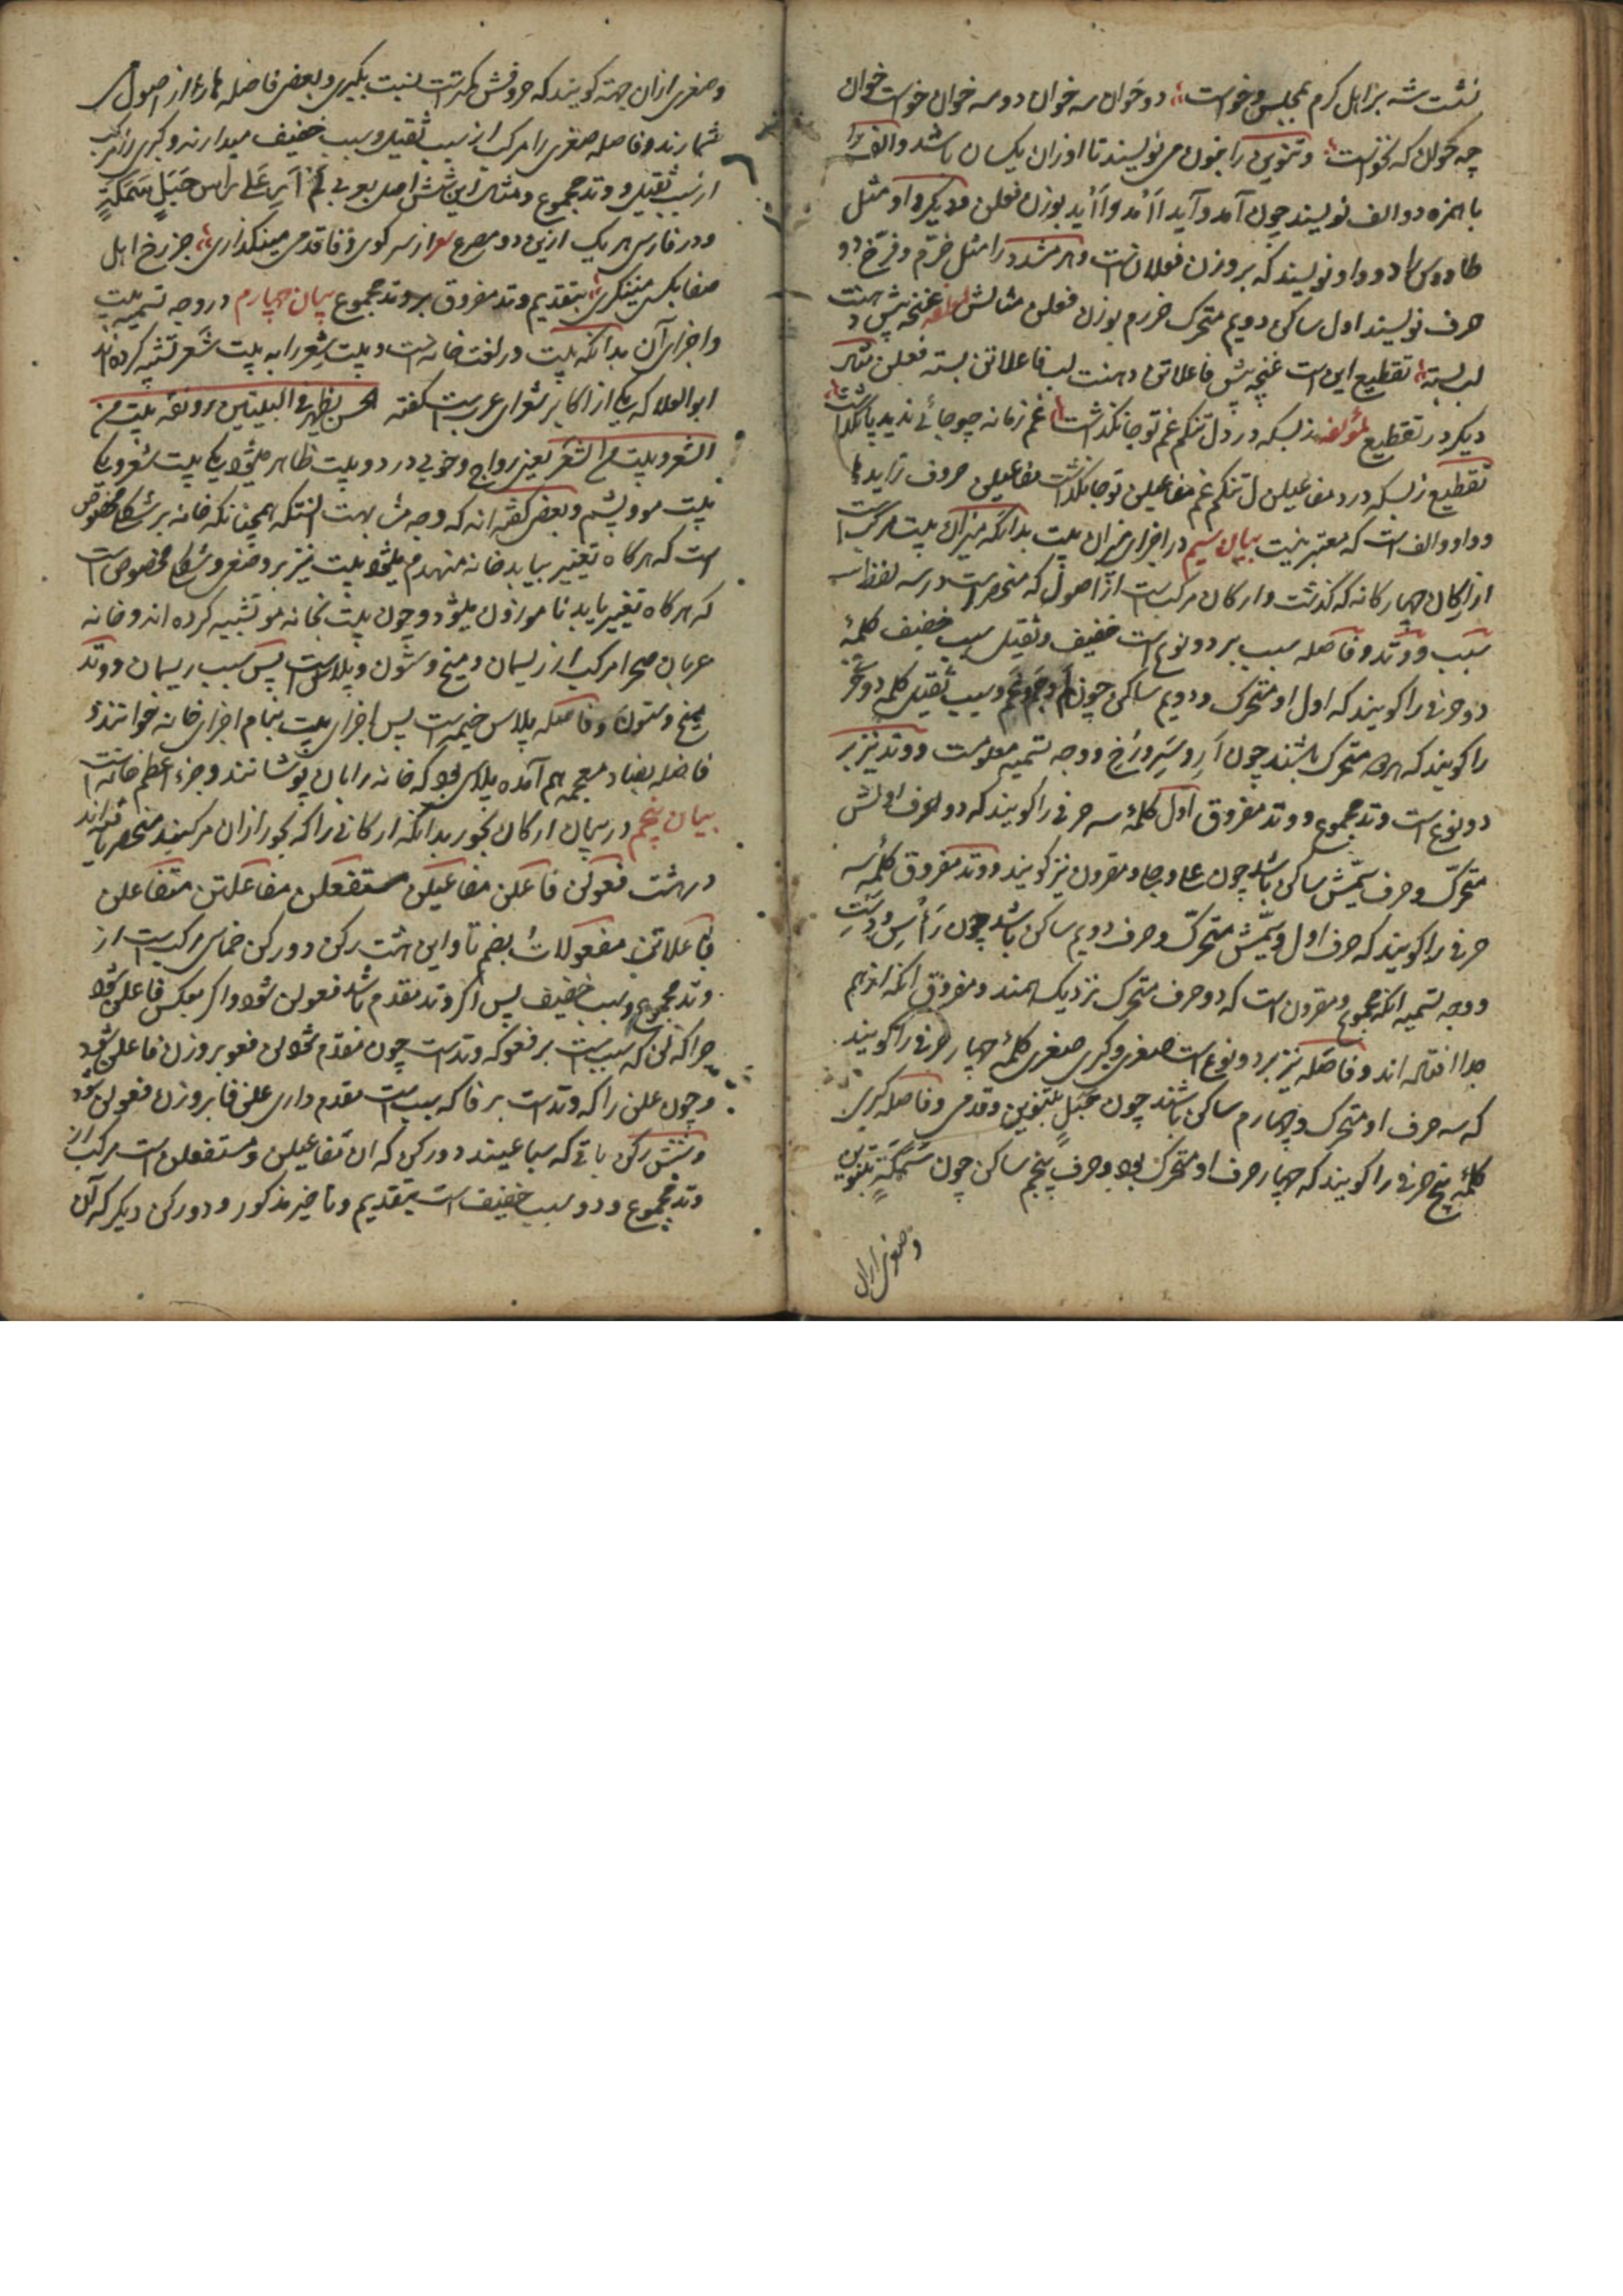 نشست شه بز اهل کرم بمجلس و خواست دو خوان سه خوان دو سه خوان خواست خوان
چه خوان که نخواست و تنوین را بنون می نویسند تا اوزان یکسان باشد و الف را
با همزه دو الف نویسند چون آمد و آید أأمد و أأید بوزن فعلن و دیکر واو مثل
طاوس را دو واو نویسند که بر وزن فعلان است و هر مشدد را مثل خرّم و فرّخ دو
حرف نویسند اول ساکن دویم متحرک خررم بوزن فعلن مثالش غنچه پیش دهنت
لب بسته تقطیع این است غنچه پیش فاعلاتن دهنت لب فاعلاتن بسته فعلن مثال
دیکر در تقطیع لمؤلفه ز بسکه در دل تنکم غم تو جا نکذاشت غم زمانه چو جائی ندید پا نکذاشت
تقطیع ز بسکه در د مفاعیلن ل تنکم غم مفاعیلن تو جا نکذاشت مفاعیلن حروف زاید ها
و واو و الف است که معتبر نیست بیان سیم در اجزای میزان بیت بدانکه میزان بیت مرکب است
از ارکان چهار کانه که کذشت و ارکان مرکب است از اصول که منحصر است در سه لفظ
سبب و وتد و فاصله سبب بر دو نوع است خفیف و ثقیل سبب خفیف کلمهٔ
دو حرفی را کویند که اول او متحرک و دویم ساکن چون و سبب ثقیل کلمه دو حرفی
را کویند که هر دو متحرک باشند چون و وجه تسمیه معلومست و وتد نیز بر
دو نوع است وتد مجموع و وتد مفروق اول کلمهٔ سه حرفی را کویند که دو حرف اولش
متحرّک و حرف سیّمش ساکن باشد چون و مقرون نیز کویند و وتد مفروق کلمهٔ سه
حرفی را کویند که حرف اول و سیّمش متحرّک و حرف دویم ساکن باشد چون رَأْسِ و
و وجه تسمیه انکه مجموع و مقرون است که دو حرف متحرک نزدیک همند و مفروق انکه از هم
جدا افتاده اند و فاصله نیز بر دو نوع است صغری و کبری صغری کلمهٔ چهار حرفی را کویند
که سه حرف او متحرک و چهارم ساکن باشند چون جَبَلٍ بتنوین و قدمی و فاصله کبری
کلمهٔ پنج حرفی را کویند که چهار حرف او متحرک بود و حرف پنجم ساکن چون سَمَکَةٍ بتنوین
و صغری ازان
و صغری ازان جهة کویند که حروفش کمتر است نسبت بکبری و بعضی فاصله ها را از اصول
شمارند و فاصله صغری را مرکب از سبب ثقیل و سبب خفیف میدارند و کبری را مرکب
از سبب ثقیل و وتد مجموع و مثال این شش اصل بعربی لَمْ أَرَ عَلی رأس جَبَلٍ سَمَکَةٍ
و در فارسی هر یک ازین دو مصرع از سر کوی وفا قدمی میکذاری جز رخ اهل
صفا بکسی مینکری بتقدیم وتد مفروق بر وتد مجموع بیان چهارم در وجه تسمیه بیت
و اجزای آن بدانکه بیت در لغت خانه است و بیت شِعر را به بیت شَعر تشبیه کرده اند
ابوالعلا که یکی از اکابر شعرای عربست کفته الحسن یظهر فی البیتین رونقه بیت من
الشعر و بیت من الشَعَر یعنی رواج و خوبی در دو بیت ظاهر میشود یکی بیت شعر و یکی
بیت مو و پشم و بعضی کفته اند که وجه مشابهت انستکه همچنانکه خانه بر شکل مخصوص
است که هرکاه تغییر بیابد خانه منهدم میشود بیت نیز بر وضعی و شکل مخصوص است
که هرکاه تغییر یابد ناموزون میشود و چون بیت بخانه مو تشبیه کرده اند و خانه
عربان صحرا مرکب از ریسمان و میخ و ستون و پلاس است پس سبب ریسمان و وتد
میخ و ستون و فاصله پلاس خیمه است پس اجزای بیت بنام اجزای خانه خوانند و
فاضله بضاد معجمه هم آمده پلاسی بود که خانه را بان پوشانند و جزء اعظم خانه است
بیان پنجم در بیان ارکان بحور بدانکه ارکانی را که بحور ازان مرکبند منحصر یافته اند
در هشت فعولن فاعلن مفاعیلن مستفعلن مفاعلتن متفاعلن
فاعلاتن مفعولات بضم تا و این هشت رکن دو رکن خماسی مرکب است از
وتد مجموع و سبب خفیف پس اکر وتد مقدم باشد فعولن شود و اکر بعکس فاعلن شود
چرا که لن که سبب است بر فعو که وتد است چون مقدّم شود لن فعو بر وزن فاعلن شود
و چون علن را که وتد است بر فا که سبب است مقدم داری علن فا بر وزن فعولن شود
و شش رکن باقی که سباعیند دو رکن که ان مفاعیلن و مستفعلن است مرکب از
وتد مجموع و دو سبب خفیف است بتقدیم و تاخیر مذکور و دو رکن دیکر که آن